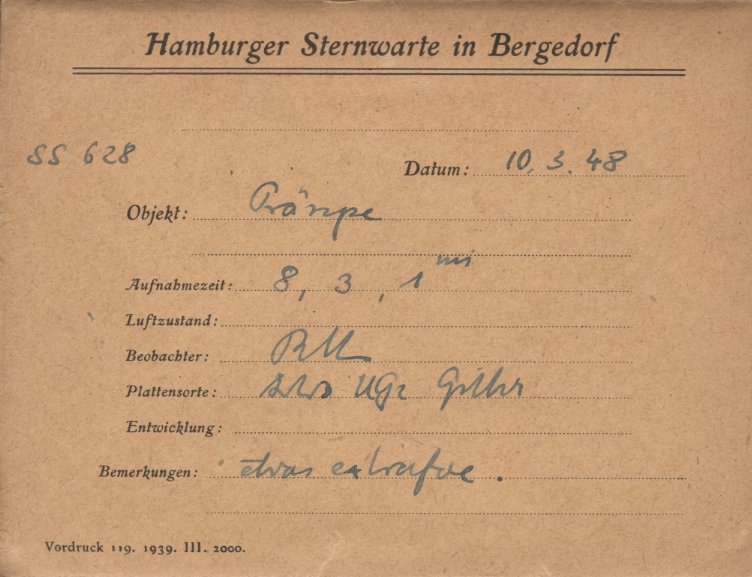 Hamburger Sternwarte in Bergedorf
SS 628
Datum: 10. 3. 48
Objekt: Präsepe
Aufnahmezeit: 8, 3, 1 m
Luftzustand:
Beobachter:
Plattensorte: UG2
Entwicklung:
Bemerkungen: etwas extrafoc.
Vordruck 119. 1939. III. 2000.